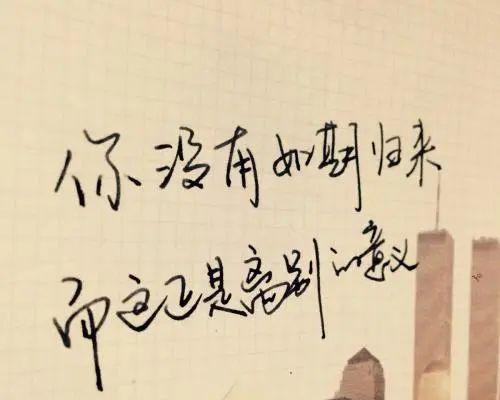 你没有如期归来
而这正是离别的意义